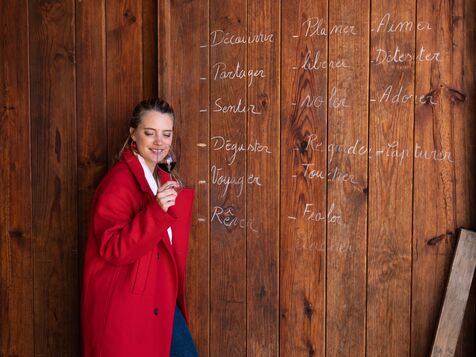 - Découvrir
- Partager
- Sentir
- Déguster
- Voyager
- Rêver
- Planer
- libérer
- voler
- Regarder
- Toucher
- Aimer
- Détester
- Adorer
- Capturer